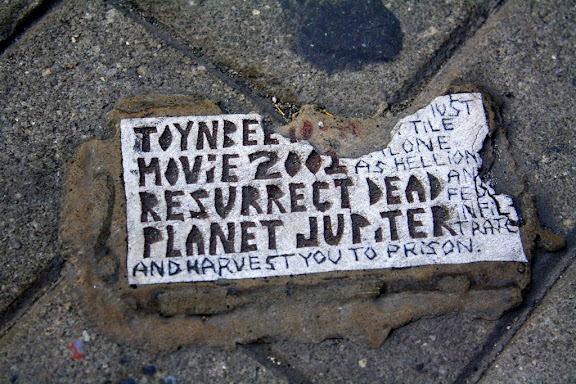 TOYNBE
MOViE 2001
RESURRECT DEAD
PLANET JUPiTER
AND HARVEST YOU TO PRiSON.
TILE
LONE
AS HELLION
AN
FE
INFIL
TRATE